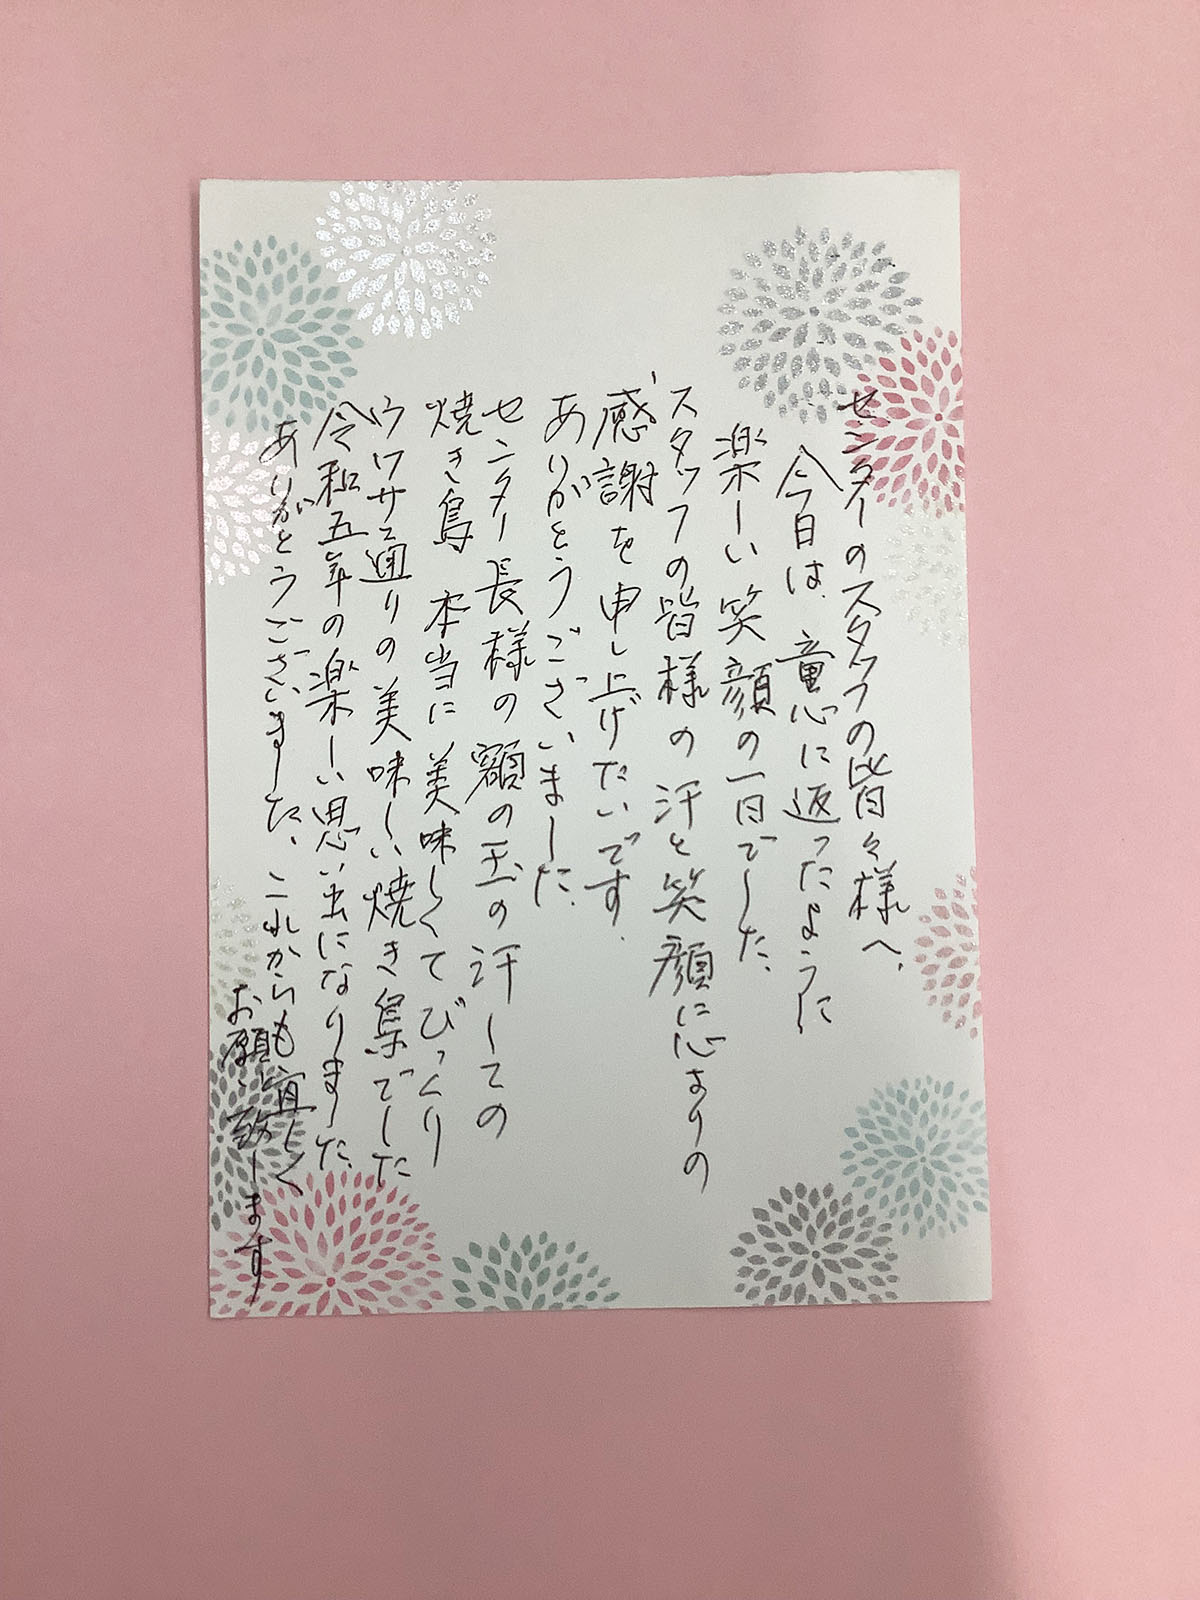 センターのスタッフの皆々様へ、
今日は、童心に返ったように
楽しい笑顔の一日でした、
スタッフの皆様の汗と笑顔に心よりの
感謝を申し上げたいです、
ありがとうございました、
センター長様の額の玉の汗しての
焼き鳥 本当に美味しくてびっくり
ウワサ通りの美味しい焼き鳥でした
令和五年の楽しい思い出になりました、
ありがとうございました、これからも宜しく
お願い致します